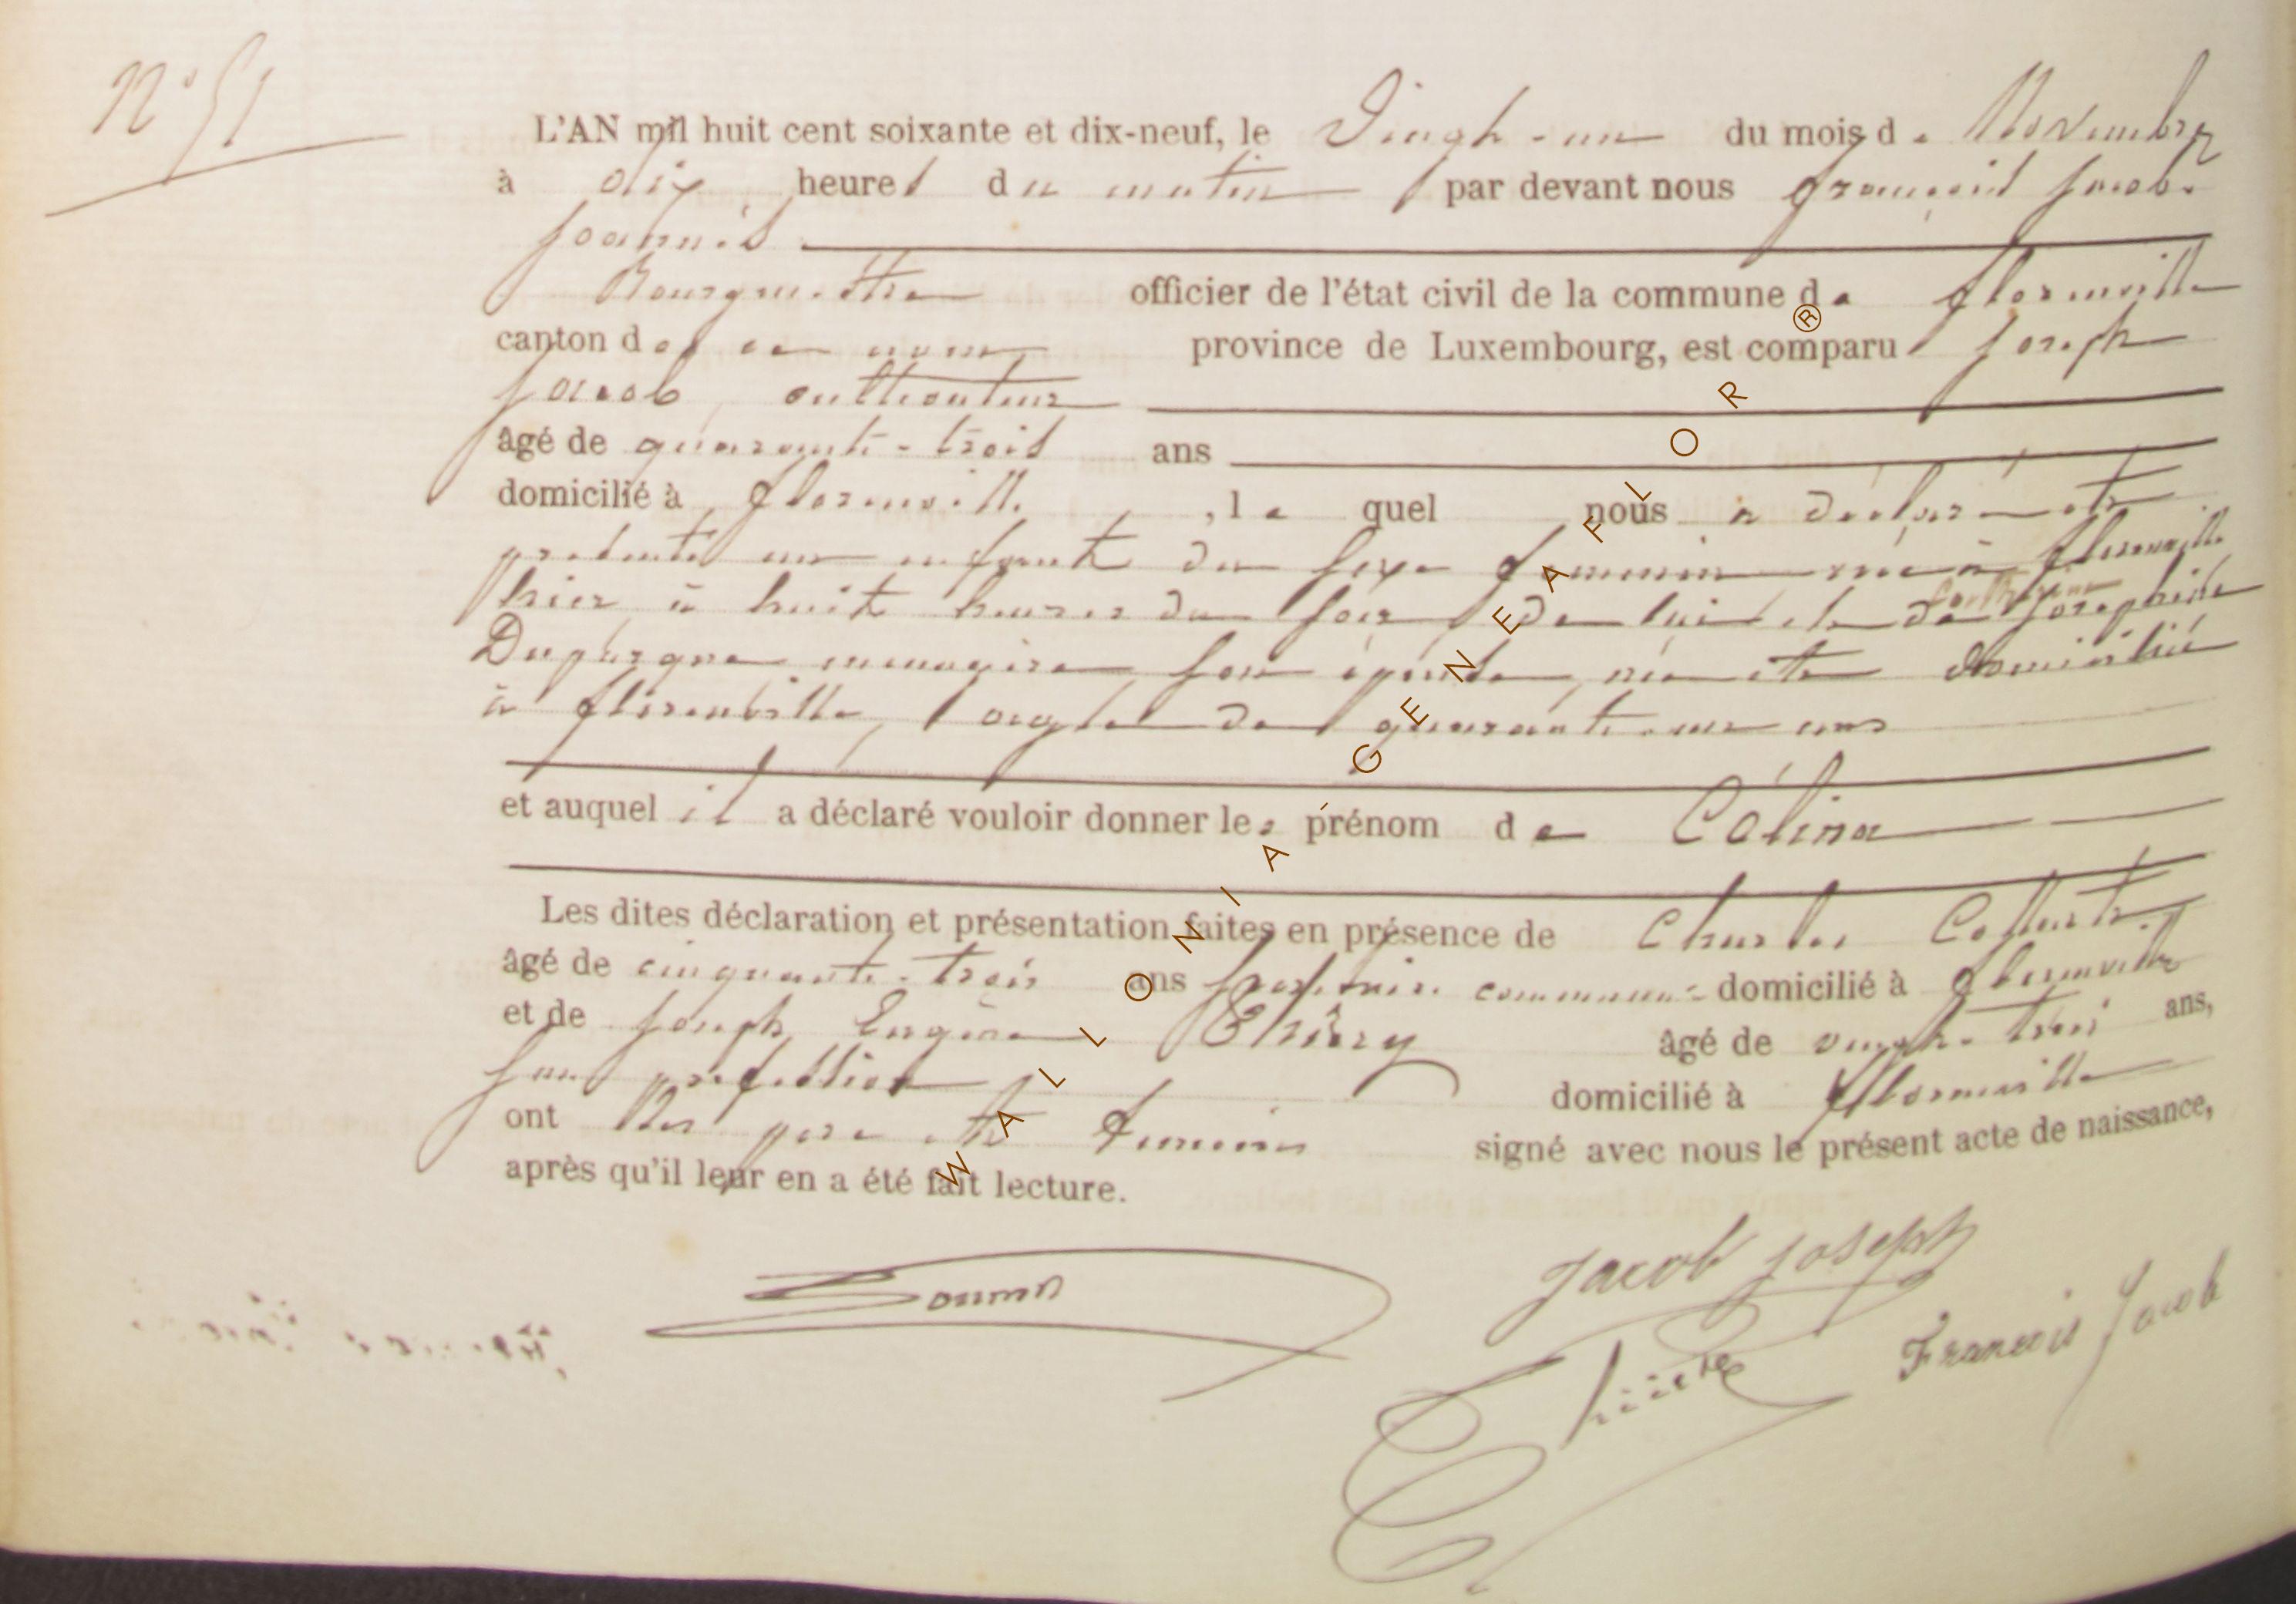 N° 51
L'AN mil huit cent soixante et dix-neuf, le Vingt-un du mois de Novembre
à dix heures du matin par devant nous françois Jacob
Joannès
Bourgmestre officier de l'état civil de la commune de florenville
canton de ce nom province de Luxembourg, est comparu Joseph
Jacob, cultivateur
âgé de quarante-trois ans
domicilié à florenville, le quel nous a déclaré et
présenté un enfant du sexe féminin née à florenville
hier à huit heures du soir de lui et de Joséphine
ménagère son épouse, née et domiciliée
à florenville, âgée de quarante-un ans
et auquel il a déclaré vouloir donner le prénom de Célina
Les dites déclaration et présentation faites en présence de Charles
âgé de cinquante-trois ans domicilié à florenville
et de Joseph Eugène Thiéry âgé de vingt-trois ans,
sans profession domicilié à florenville
ont les père et témoins signé avec nous le présent acte de naissance,
après qu'il leur en a été fait lecture.
Jacob Joseph
François Jacob
WALLONIA GENEAFLOR ®